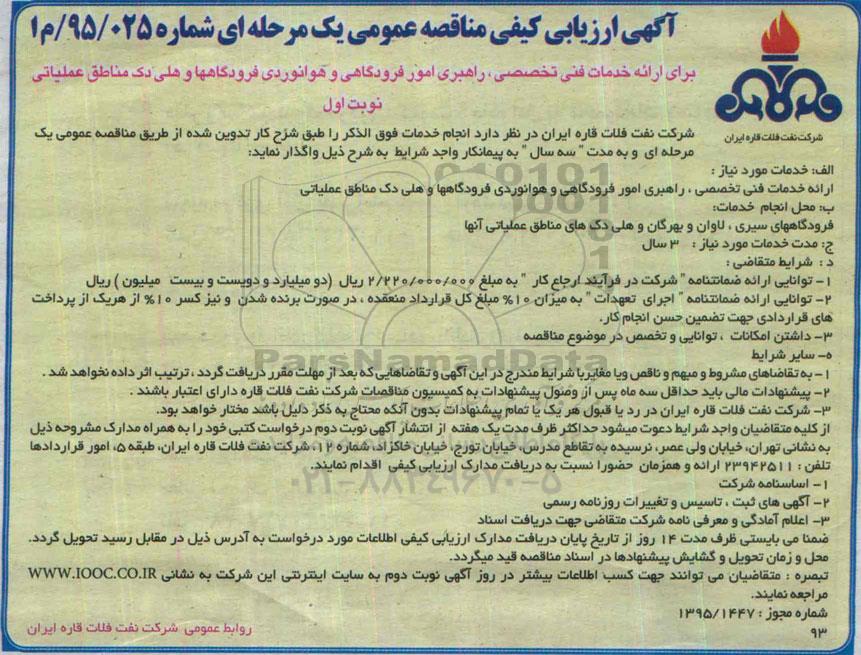 آگهی ارزیابی کیفی مناقصه عمومی یک مرحله ای شماره ۹۵/۰۲۵/م۱
برای ارائه خدمات فنی تخصصی ، راهبری امور فرودگاهی و هوانوردی فرودگاهها و هلی دک مناطق عملیاتی
نوبت اول
شرکت نفت فلات قاره ایران
شرکت نفت فلات قاره ایران در نظر دارد انجام خدمات فوق الذکر را طبق شرح کار تدوین شده از طریق مناقصه عمومی یک
مرحله ای و به مدت " سه سال " به پیمانکار واجد شرایط به شرح ذیل واگذار نماید:
الف: خدمات مورد نیاز :
ارائه خدمات فنی تخصصی ، راهبری امور فرودگاهی و هوانوردی فرودگاهها و هلی دک مناطق عملیاتی
ب: محل انجام خدمات:
فرودگاههای سیری ، لاوان و بهرگان و هلی دک های مناطق عملیاتی آنها
ج: مدت خدمات مورد نیاز : ۳ سال
د : شرایط متقاضی :
۱- توانایی ارائه ضمانتنامه " شرکت در فرآیند ارجاع کار " به مبلغ ۲/۲۲۰/۰۰۰/۰۰۰ ریال (دو میلیارد و دویست و بیست میلیون ) ریال
۲- توانایی ارائه ضمانتنامه " اجرای تعهدات " به میزان ۱۰% مبلغ کل قرارداد منعقده ، در صورت برنده شدن و نیز کسر ۱۰% از هریک از پرداخت
های قراردادی جهت تضمین حسن انجام کار.
۳- داشتن امکانات ، توانایی و تخصص در موضوع مناقصه
ه- سایر شرایط
۱- به تقاضاهای مشروط و مبهم و ناقص ویا مغایربا شرایط مندرج در این آگهی و تقاضاهایی که بعد از مهلت مقرر دریافت گردد ، ترتیب اثر داده نخواهد شد .
۲- پیشنهادات مالی باید حداقل سه ماه پس از وصول پیشنهادات به کمیسیون مناقصات شرکت نفت فلات قاره دارای اعتبار باشند .
۳- شرکت نفت فلات قاره ایران در رد یا قبول هر یک یا تمام پیشنهادات بدون آنکه محتاج به ذکر دلیل باشد مختار خواهد بود.
از کلیه متقاضیان واجد شرایط دعوت میشود حداکثر ظرف مدت یک هفته از انتشار آگهی نوبت دوم درخواست کتبی خود را به همراه مدارک مشروحه ذیل
به نشانی تهران، خیابان ولی عصر، نرسیده به تقاطع مدرس، خیابان تورج، خیابان خاکزاد، شماره ۱۲، شرکت نفت فلات قاره ایران، طبقه ۵، امور قراردادها
تلفن : ۲۳۹۴۲۵۱۱ ارائه و همزمان حضورا نسبت به دریافت مدارک ارزیابی کیفی اقدام نمایند.
۱- اساسنامه شرکت
۲- آگهی های ثبت ، تاسیس و تغییرات روزنامه رسمی
۳- اعلام آمادگی و معرفی نامه شرکت متقاضی جهت دریافت اسناد
ضمنا می بایستی ظرف مدت ۱۴ روز از تاریخ پایان دریافت مدارک ارزیابی کیفی اطلاعات مورد درخواست به آدرس ذیل در مقابل رسید تحویل گردد.
محل و زمان تحویل و گشایش پیشنهادها در اسناد مناقصه قید میگردد.
تبصره : متقاضیان می توانند جهت کسب اطلاعات بیشتر در روز آگهی نوبت دوم به سایت اینترنتی این شرکت به نشانی WWW.IOOC.CO.IR
مراجعه نمایند.
شماره مجوز : ۱۳۹۵/۱۴۴۷
۹۳
روابط عمومی شرکت نفت فلات قاره ایران
ParsNamadData
۰۲۱-۸۸۳۴۹۶۷۰-۵